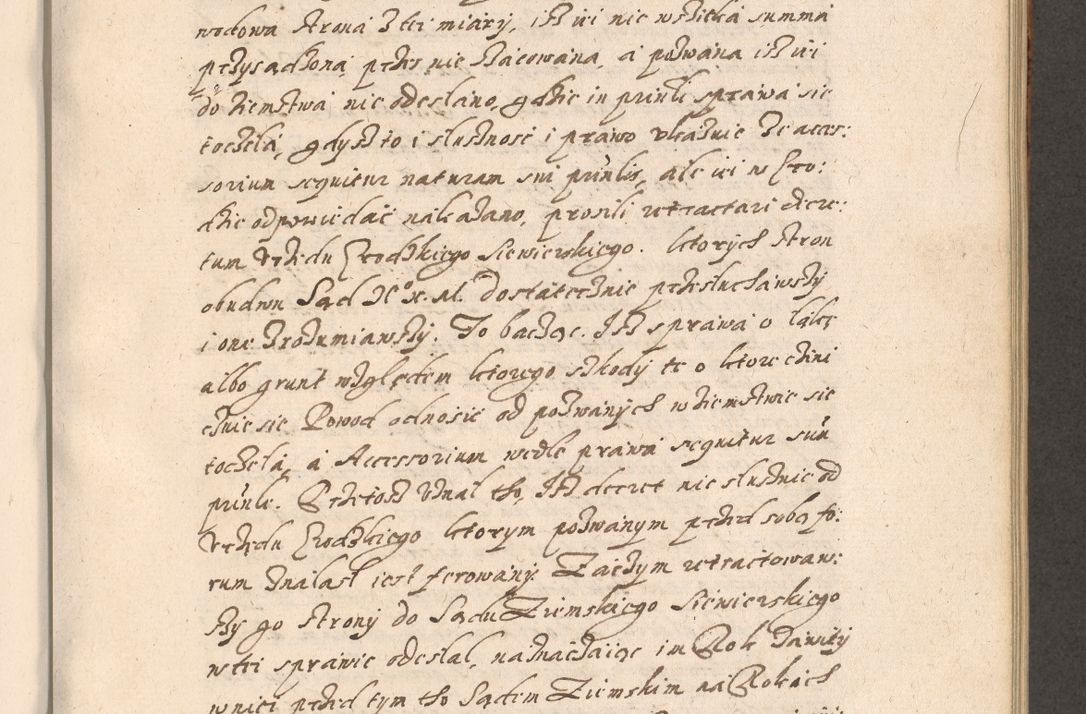 wodowa strona z tei miary, isz iei nie wszitka summa
przysądzona przes nie szacowana, a pozwana isz iei
do ziemstwa nie odesłano, gdzie in prinli sprawa sie
toczela, gdysz to i slusznosc i prawo vkazuie ze aces:
sorium sequitur naturam sui prinlis, ale iei w Gro:
dzie odpowiedać nakazano, prosili retractari decre:
tum Vrzędu Grodzkiego Siewierskiego. ktorych stron
obudwu Sąd JeoX.M. dostatecznie przesłuchawszy
i one zrozumiawszy. To bacząc. Jsz sprawa o łąkę
albo grunt względem ktorego szkody te o ktore czini
czuie sie Powod odnosic od pozwanych w ziemstwie sie
toczela, a Accessorium wedle prawa sequitur suū
prinle. Przetosz Vznal tho, Jsz decret nie slusznie od
Vrzędu Grodzkiego ktorym pozwanym przed sobą fo:
rum znalasł iest ferowany. Zaczym retractowaw:
szy go strony do Sądu Ziemskiego Siewierskiego
w tei sprawie odeslal, naznaczaiąc im Rok zawity
w niei przed tym tho Sądem Ziemskim na Rokach